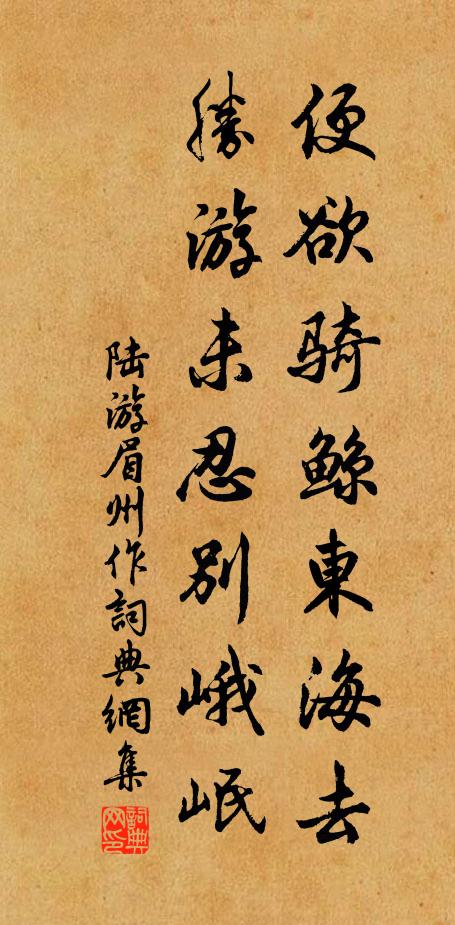 便欲骑鲸東海去
勝游未忍别峨岷
陆游眉州作詞典網集
詞典网印